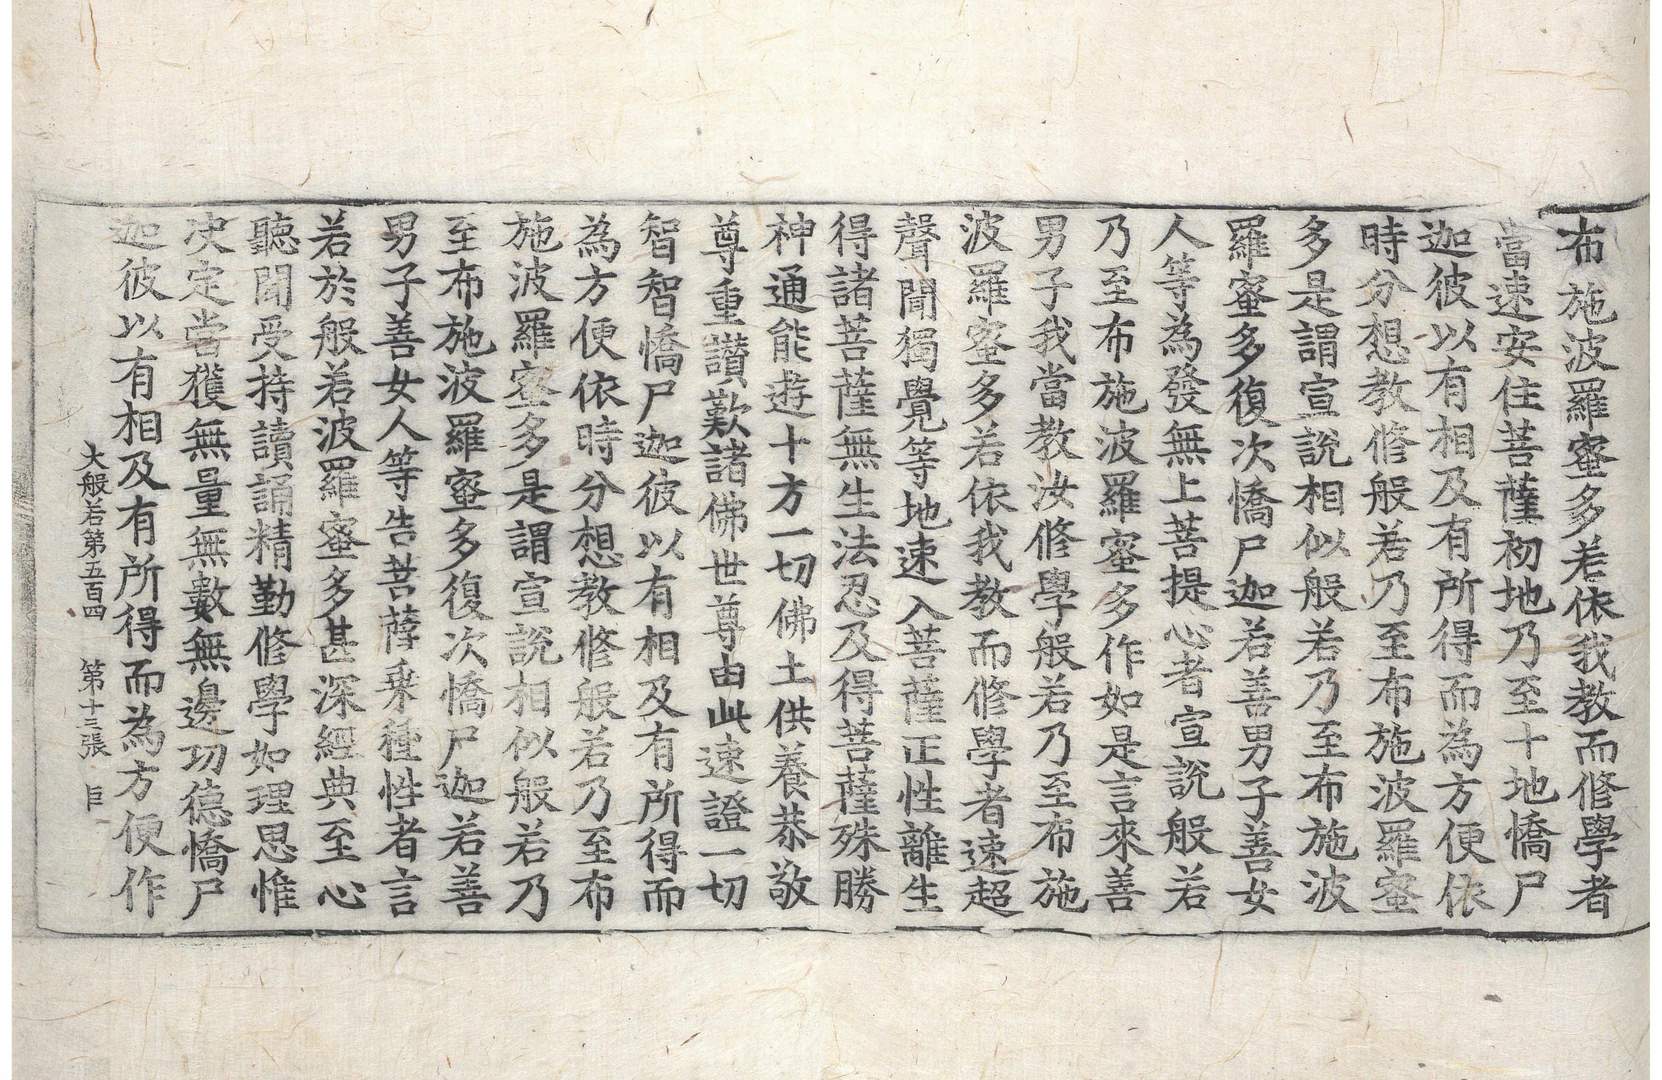 布施波羅蜜多若依我教而修學者
當速安住菩薩初地乃至十地憍尸
迦彼以有相及有所得而為方便依
時分想教修般若乃至布施波羅蜜
多是謂宣說相似般若乃至布施波
羅蜜多復次憍尸迦若善男子善女
人等為發無上菩提心者宣說般若
乃至布施波羅蜜多作如是言來善
男子我當教汝修學般若乃至布施
波羅蜜多若依我教而修學者速超
聲聞獨覺等地速入菩薩正性離生
得諸菩薩無生法忍及得菩薩殊勝
神通能遊十方一切佛土供養恭敬
尊重讚歎諸佛世尊由此速證一切
智智憍尸迦彼以有相及有所得而
為方便依時分想教修般若乃至布
施波羅蜜多是謂宣說相似般若乃
至布施波羅蜜多復次憍尸迦若善
男子善女人等告菩薩乘種性者言
若於般若波羅蜜多甚深經典至心
聽聞受持讀誦精勤修學如理思惟
決定當獲無量無數無邊功德憍尸
迦彼以有相及有所得而為方便作
大般若第五百四 第十三張 巨